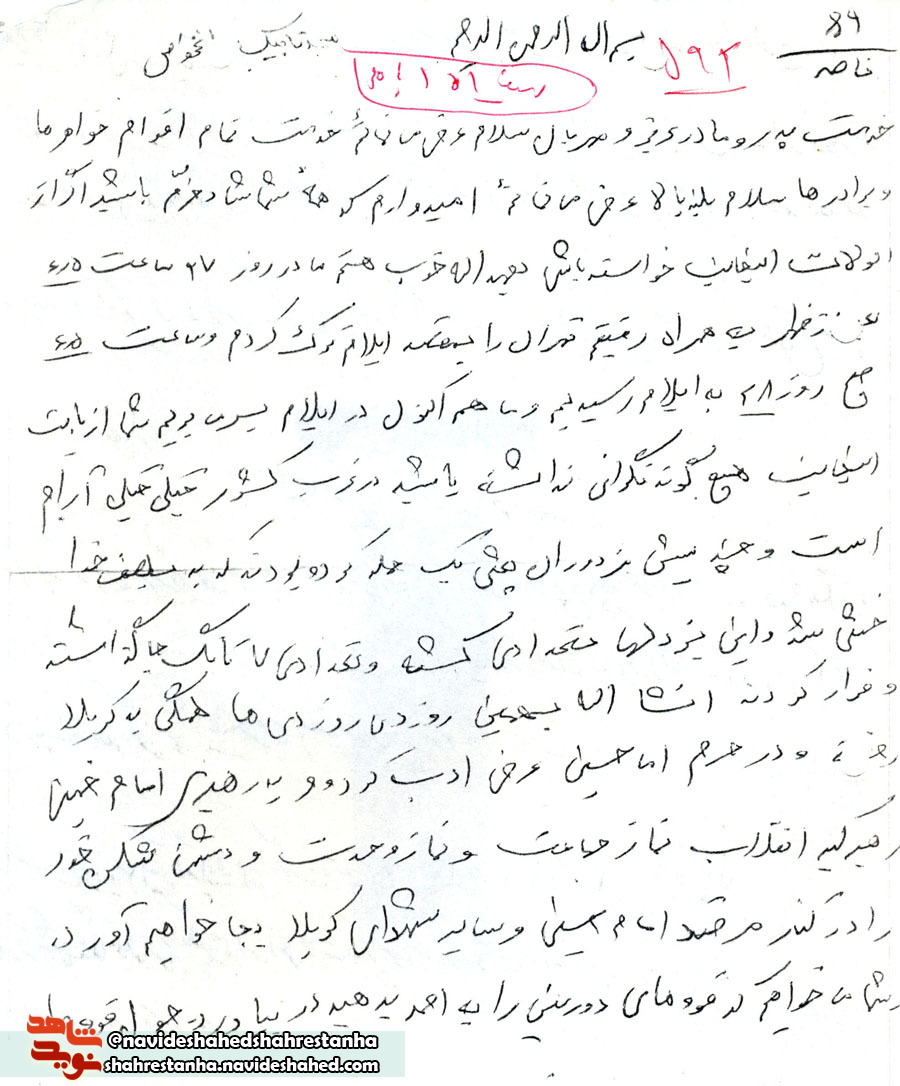 بسم الله الرحمن الرحیم
۵۹۲
خدمت پدر و مادر عزیز و مهربان سلام عرض می نمائم خدمت تمام اقوام خواهرها
و برادرها سلام بلند بالا عرض می نمائم امیدوارم که همهٔ شما شاد و خرّم باشید اگر از
احوالات اینجانب خواسته باشی بحمداله خوب هستم ما در روز ۲۷ ساعت ۶٫۵
بعد از ظهر به همراه رفیقم تهران را بمقصد ایلام ترک کردم و ساعت ۶٫۵
صبح روز ۲۸ به ایلام رسیدیم و ما هم اکنون در ایلام بسر می بریم شما از بابت
اینجانب هیچ گونه نگرانی نداشته باشید در غرب کشور خیلی خیلی آرام
است و چند پیش مزدوران بعثی یک حمله کرده بودند که به لطف خدا
خنثی شد و این بزدلها تعدادی کشته و تعدادی تانک جا گذاشته
و فرار کردند انشا الله بهمین روزدی روزدی ها همگی به کربلا
رفته و در حرم امام حسین عرض ادب کرده و به رهبری امام خمینی
رهبر کبیر انقلاب نماز جماعت و نماز وحدت و دشمن شکن خود
را در کنار مرقد امام حسین و سایر شهدای کربلا بجا خواهیم آورد.
شما می خواهم که قوه های دوربین را به احمد بدهید
شاهد نوید
@navideshahedshahrestanha
shahrestanha.navideshahed.com